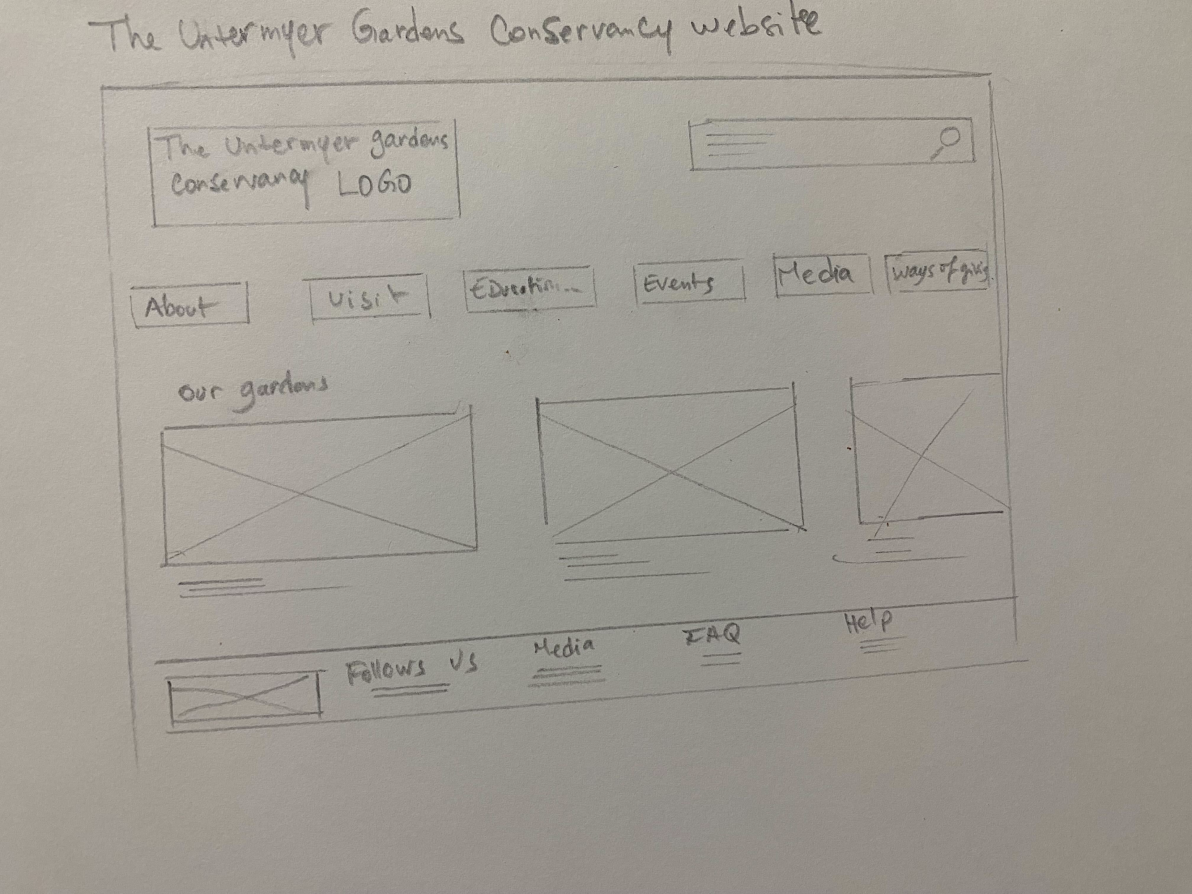 The Untermyer Gardens Conservancy website
The Untermyer gardens
Conservancy LOGO
About
Visit
Events
Media
Ways of
our gardens
Follows Us
Media
FAQ
Help